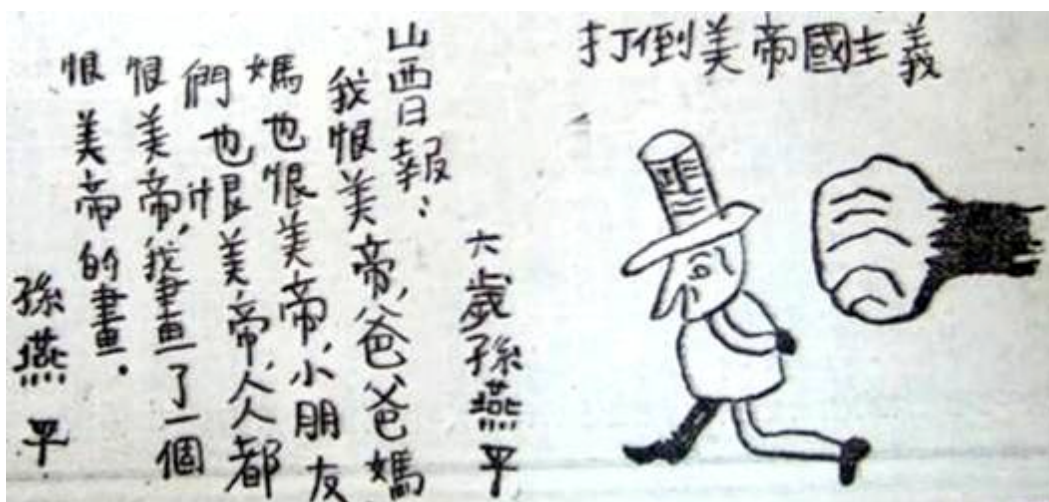 打倒美帝國主義
六歲孫燕平
山西日報：
我恨美帝，爸爸媽
媽也恨美帝，小朋友
們也恨美帝，人人都
恨美帝，我畫了一個
恨美帝的畫．
孫燕平